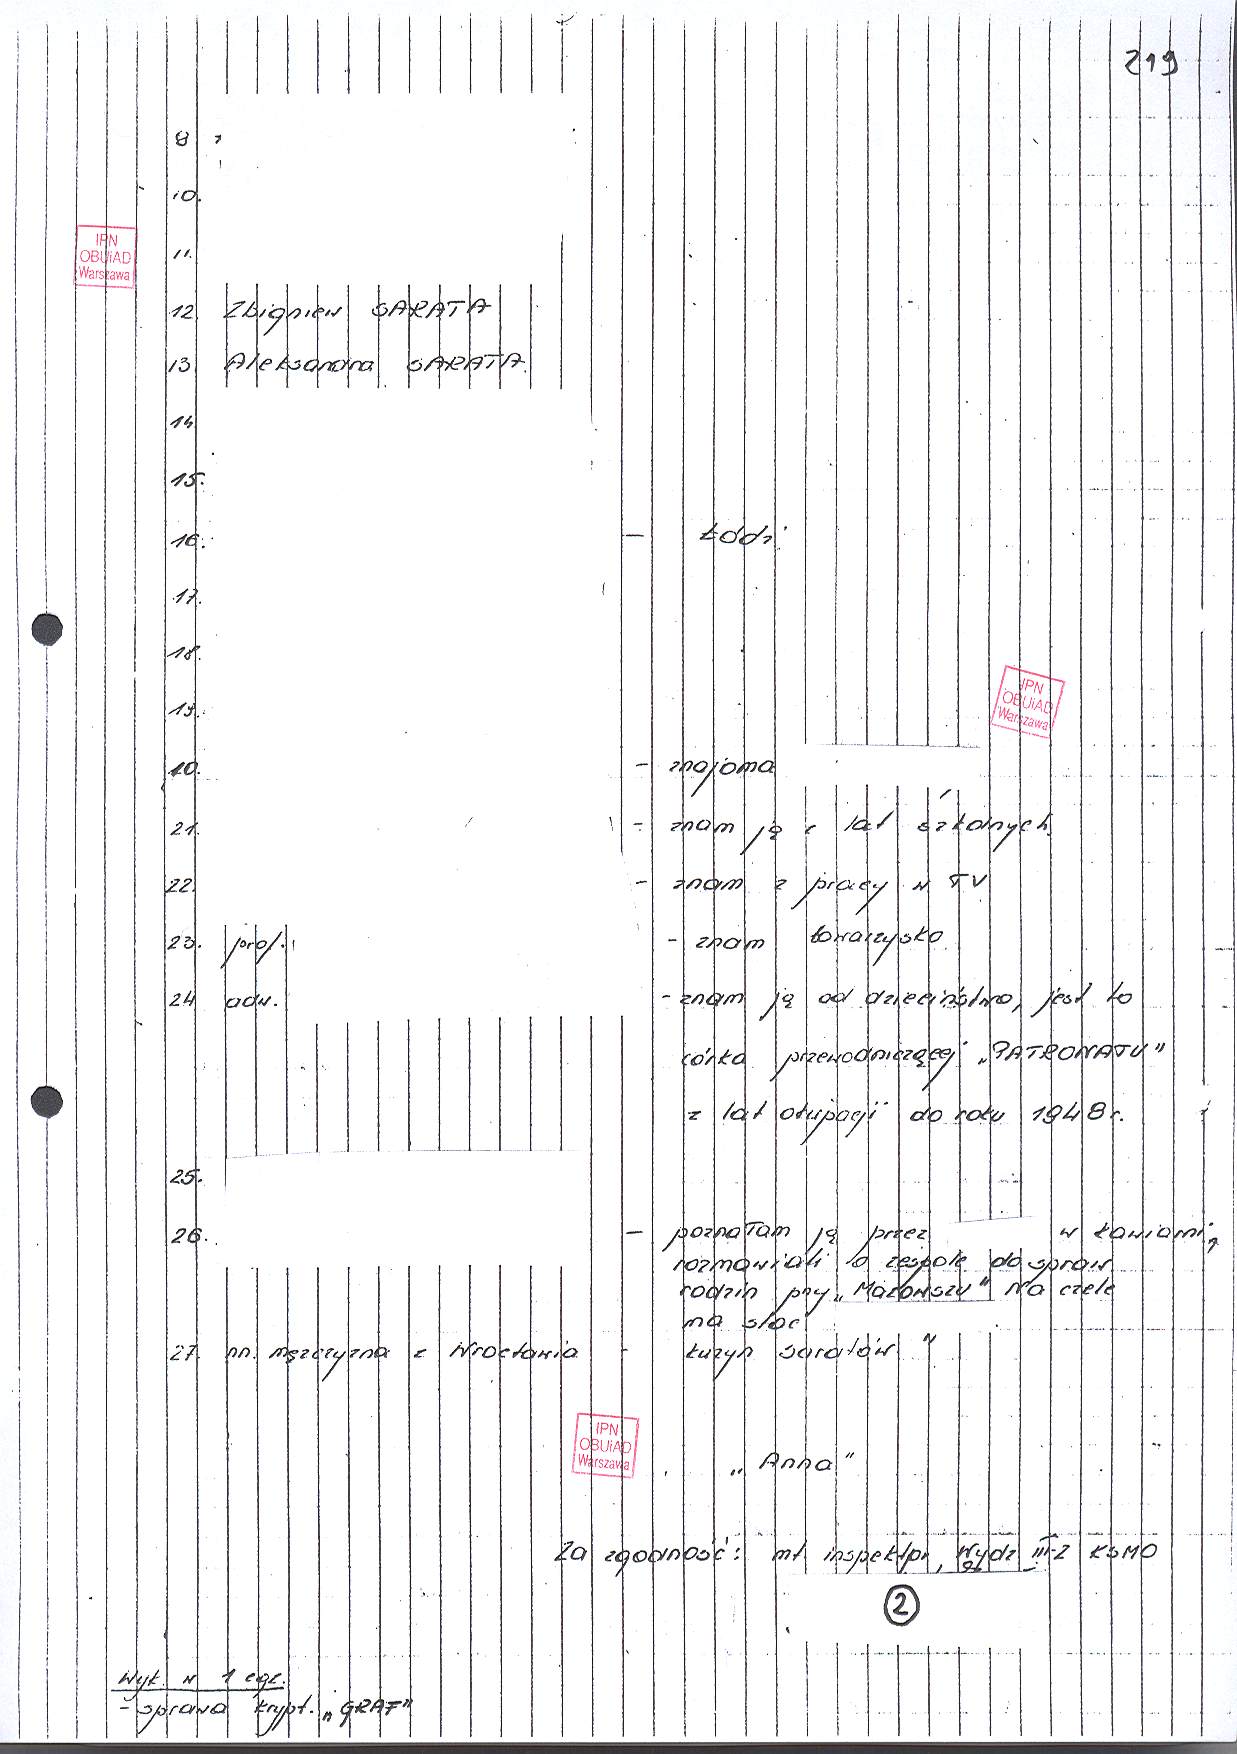 219
8
10.
11.
IPN
OBUiAD
Warszawa
12 Zbigniew SARATA
13 Aleksandra SARATA
14
15.
16. - Łódź
17.
18.
19.
IPN
OBUiAD
Warszawa
20. - znajoma
21. - znam ją z lat szkolnych
22. - znam z pracy w TV
23. prof. - znam towarzysko
24 adw. - znam ją od dzieciństwa, jest to
córka przewodniczącej „PATRONATU"
z lat okupacji do roku 1948 r.
25.
26. - poznałam ją przez w kawiarni,
rozmawiali o zespole do spraw
rodzin przy „MAZOWSZU" Na czele
ma stać
27. nn. mężczyzna z Wrocławia - kuzyn Saratów "
IPN
OBUiAD
Warszawa
„Anna"
Za zgodność: mł inspektor Wydz III-2 KSMO
2
Wyk. w 1 egz.
- sprawa krypt. „GRAF"